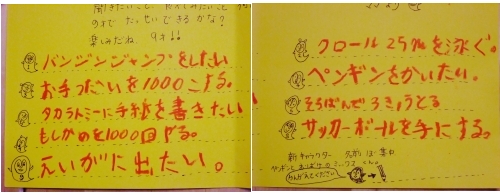 のすで たっせいできる かな?
楽しみだね、9才!!
バンジージャンプをしたい
お手つだいを1000こする。
タカラトミーに手紙を書きたい
もしかめを1000回やる。
えいがに出たい。
クロール25mを泳ぐ。
ペンギンをかいたい。
そろばんで3きゅうとる
サッカーボールを手にする。
新キャラクター 名前 ぼ 募中
かんがえてください